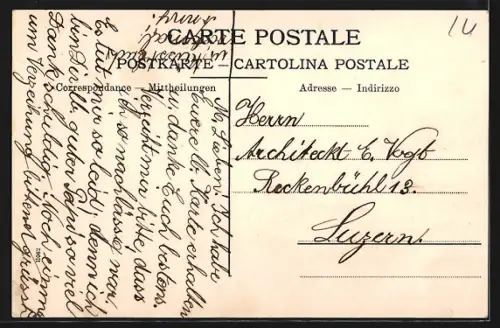 14
CARTE POSTALE
POSTKARTE – CARTOLINA POSTALE
Correspondance – Mittheilungen
Adresse – Indirizzo
Herrn
Architeckt E. Vogt
Reckenbühl 13.
Luzern.
M. Lieben! Ich habe
Euere ll. Karte erhalten
u. danke Euch bestens.
Verzeiht mir bitte, dass
ich so nachlässig war.
Es tut mir so leid; denn ich
bin dem guten Papa so viel
Dank schuldig. Noch einmal
um Verzeihung bittend